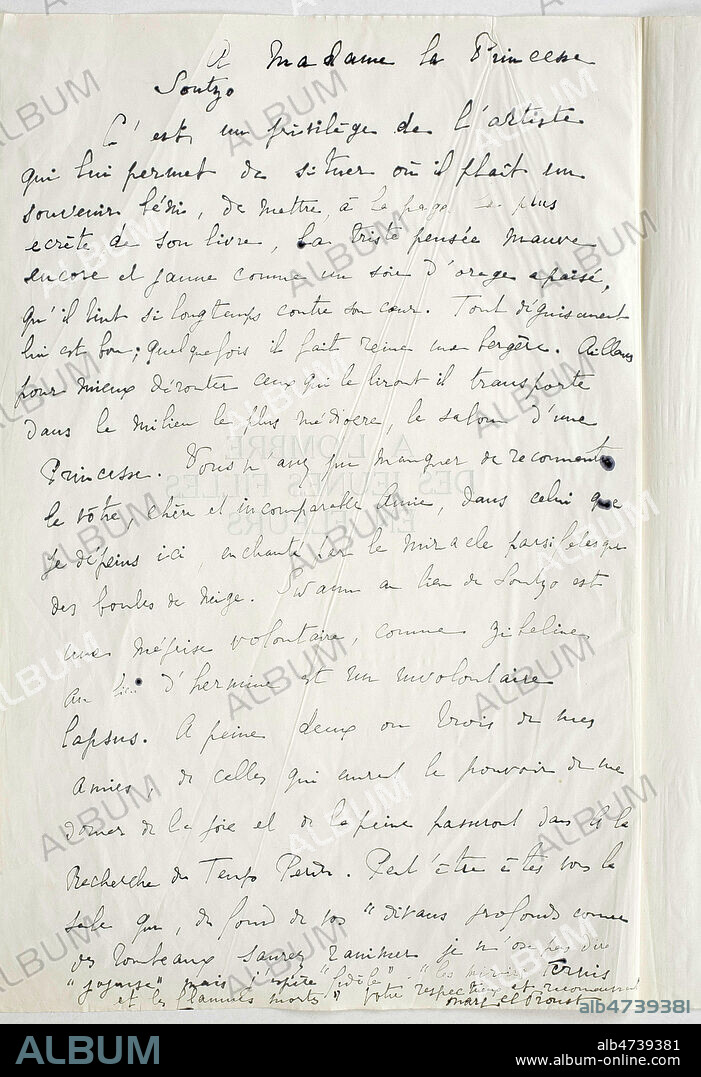 A Madame la Princesse
Soutzo
C'est un privilège de l'artiste
qui lui permet de situer où il plaît un
souvenir béni, de mettre, à la page la plus
ecrète de son livre, la triste pensée mauve
encore et jaune comme un soir d'orage apaisé,
qu'il tint si longtemps contre son cœur. Tout déguisement
lui est bon; quelquefois il fait reine une bergère. Ailleurs
pour mieux dérouter ceux qui le liront il transporte
dans le milieu le plus médiocre, le salon d'une
Princesse. Vous n'avez pu manquer de reconnaître
le vôtre, chère et incomparable Amie, dans celui que
je dépeins ici, enchanté par le miracle parsifalesque
des boules de neige. Swann au lieu de Soutzo est
une méprise volontaire, comme zibeline
au lieu d'hermine est un involontaire
lapsus. A peine deux ou trois de mes
Amies, de celles qui eurent le pouvoir de me
donner de la joie et de la peine passeront dans A la
Recherche du Temps Perdu. Peut-être êtes vous la
seule qui, du fond de vos "divans profonds comme
des tombeaux saurez ranimer je n'ose pas dire
"joyeuse" mais j'espère "fidèle" - "les miroirs ternis
et les flammes mortes" Votre respectueux et reconnaissant
Marcel Proust
A L'OMBRE
DES JEUNES FILLES
EN FLEURS
ALBUM
alb4739381
alb4739381
www.album-online.com